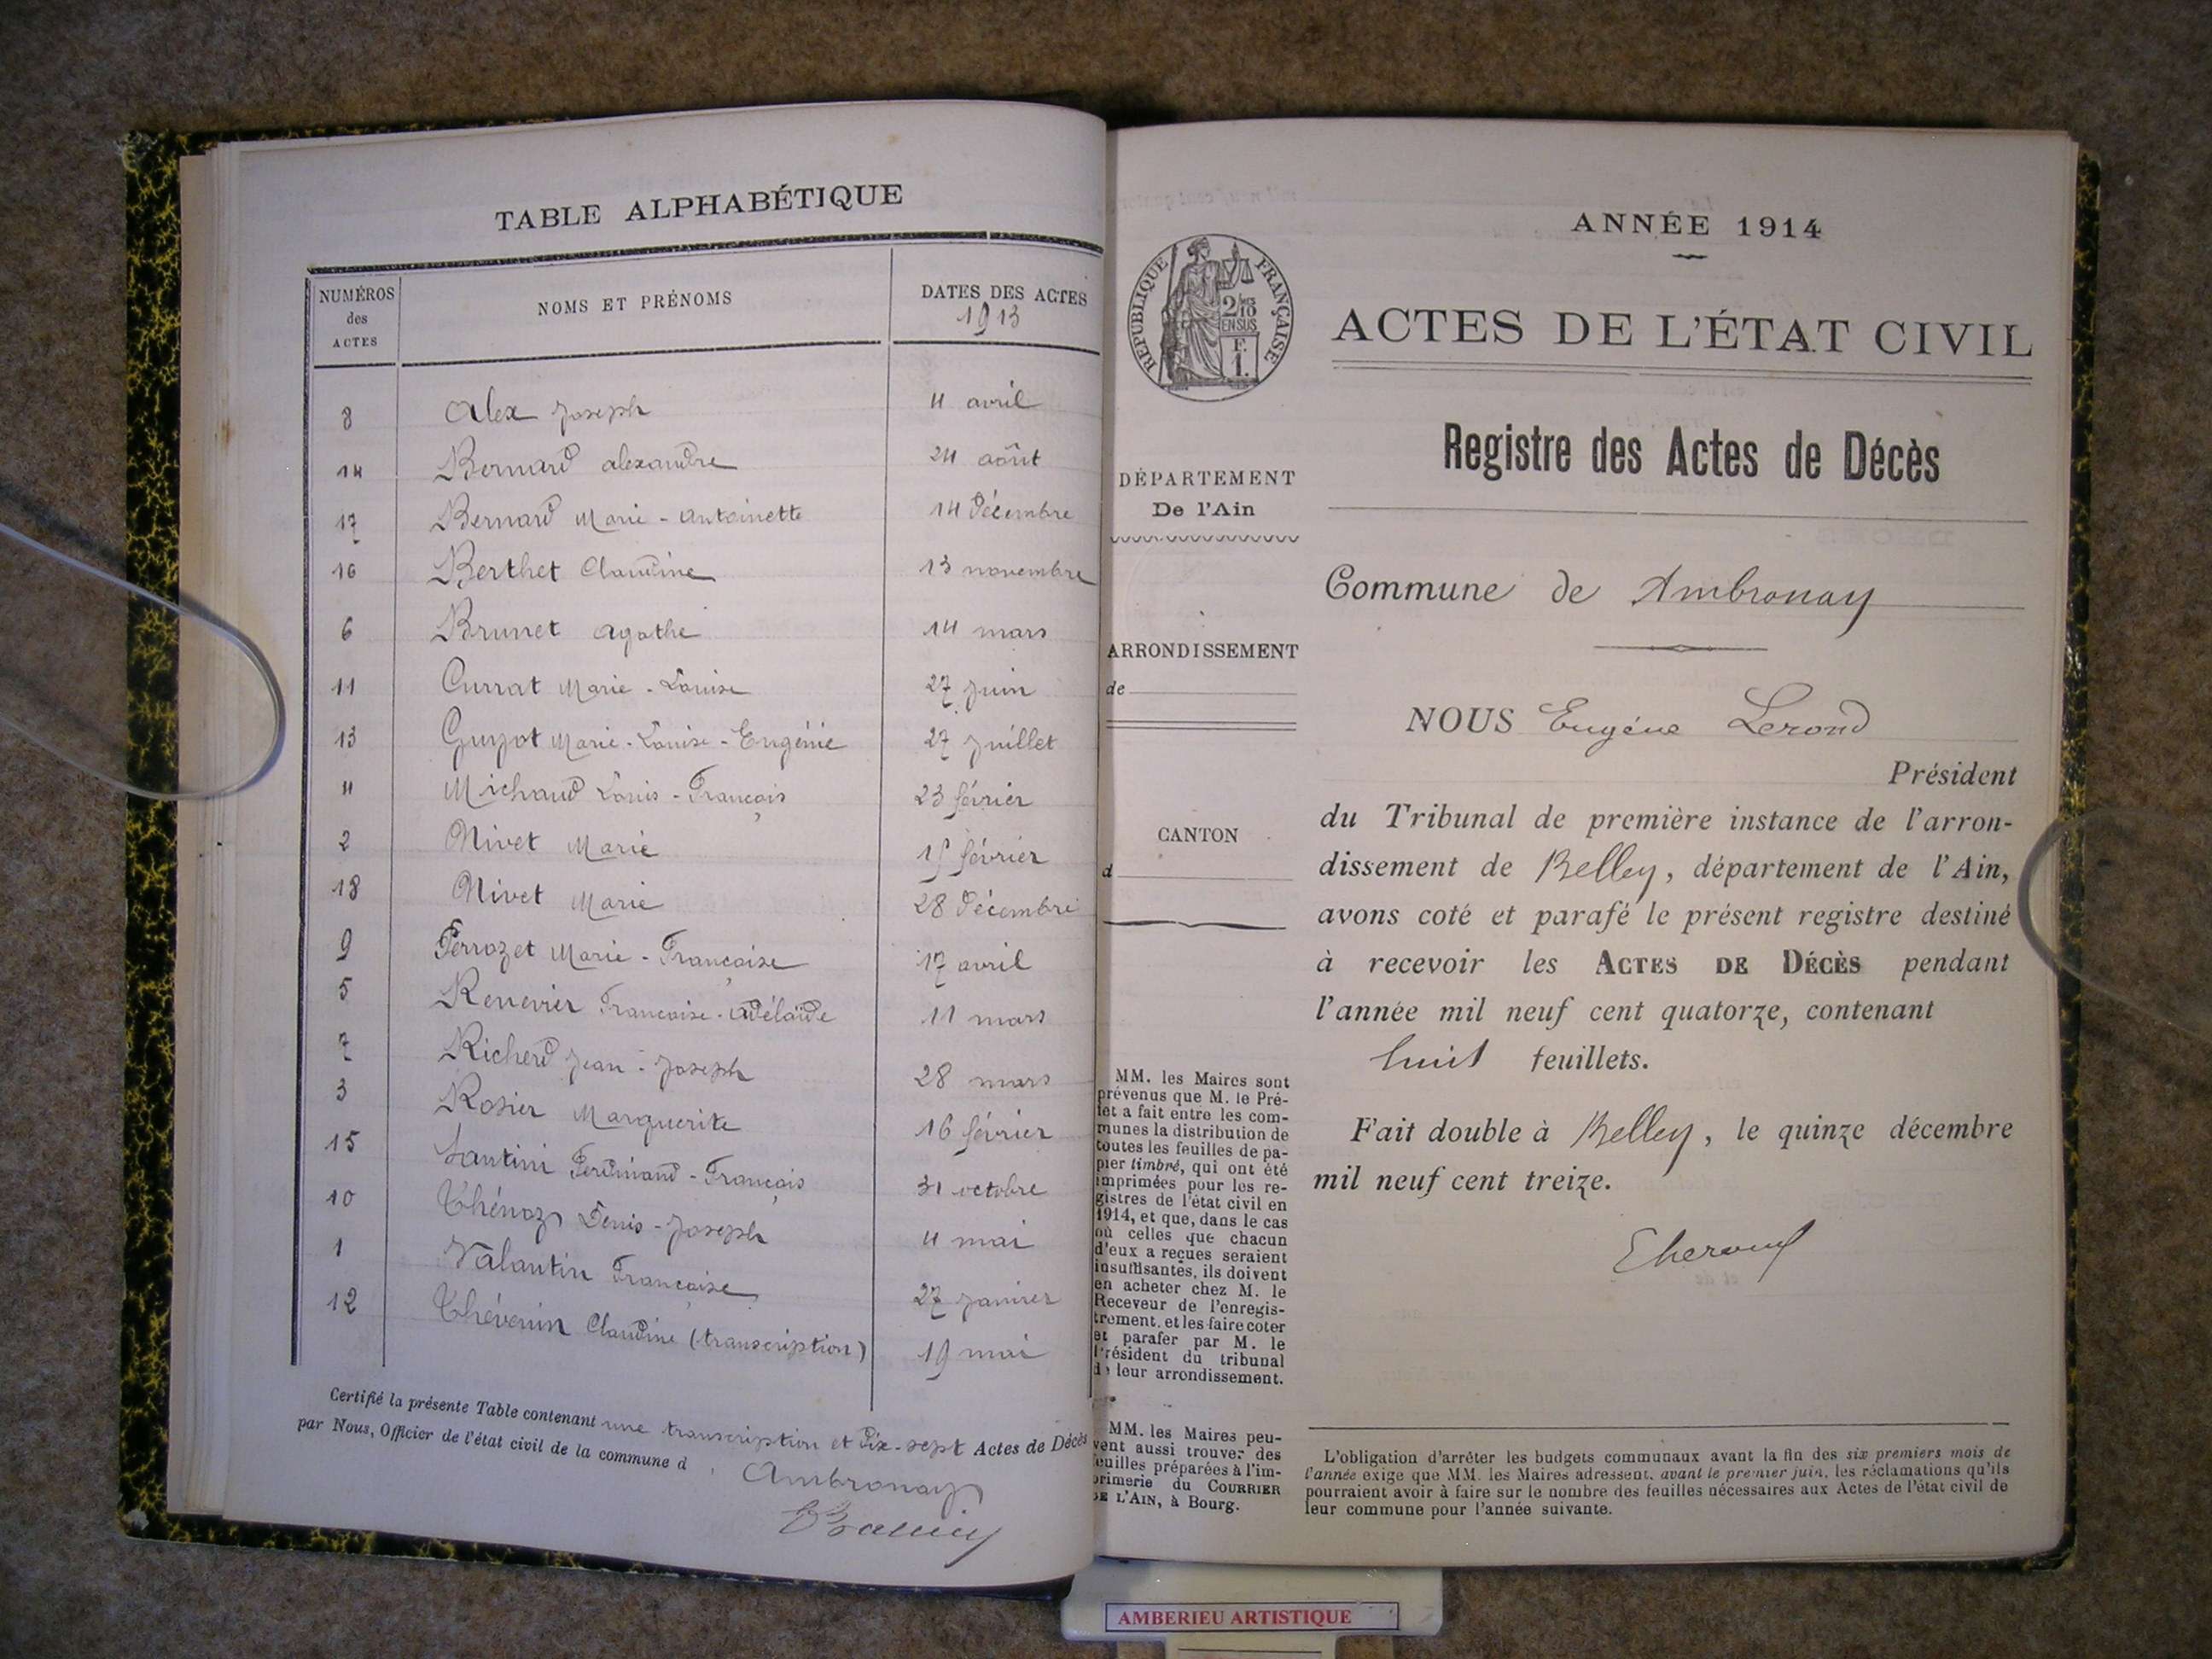 TABLE ALPHABÉTIQUE
NUMÉROS des ACTES NOMS ET PRÉNOMS DATES DES ACTES 1913
8 Alex Joseph 4 avril
14 Bernard alexandre 24 août
17 Bernard Marie - Antoinette 14 Décembre
16 Berthet Claudine 13 novembre
6 Brunet agathe 14 mars
11 Currat Marie - Louise 27 Juin
13 Guyot Marie - Louise - Eugénie 27 Juillet
4 Michaud Louis - François 23 février
2 Nivet Marie 15 février
18 Nivet Marie 28 Décembre
9 Perrozet Marie - Françoise 17 avril
5 Renevier Françoise - Adélaïde 11 mars
7 Richerd Jean - Joseph 28 mars
3 Rosier Marguerite 16 février
15 Santini Ferdinand - François 31 octobre
10 Thénoz Denis - Joseph 4 mai
1 Valantin Françoise 27 Janvier
12 Thévenin Claudine (transcription) 19 mai
Certifié la présente Table contenant une transcription et Dix-sept Actes de Décès
par Nous, Officier de l'état civil de la commune d Ambronay
RÉPUBLIQUE FRANÇAISE
2/10
EN SUS
F.
1.
DÉPARTEMENT
De l'Ain
ARRONDISSEMENT
de
CANTON
d
MM. les Maires sont
prévenus que M. le Pré-
fet a fait entre les com-
munes la distribution de
toutes les feuilles de pa-
pier timbré, qui ont été
imprimées pour les re-
gistres de l'état civil en
1914, et que, dans le cas
où celles que chacun
d'eux a reçues seraient
insuffisantes, ils doivent
en acheter chez M. le
Receveur de l'enregis-
trement, et les faire coter
et parafer par M. le
Président du tribunal
de leur arrondissement.
MM. les Maires peu-
vent aussi trouver des
feuilles préparées à l'im-
primerie du COURRIER
DE L'AIN, à Bourg.
ANNÉE 1914
ACTES DE L'ÉTAT CIVIL
Registre des Actes de Décès
Commune de Ambronay
NOUS Eugène Lerond
Président
du Tribunal de première instance de l'arron-
dissement de Belley, département de l'Ain,
avons coté et parafé le présent registre destiné
à recevoir les ACTES DE DÉCÈS pendant
l'année mil neuf cent quatorze, contenant
huit feuillets.
Fait double à Belley, le quinze décembre
mil neuf cent treize.
L'obligation d'arrêter les budgets communaux avant la fin des six premiers mois de
l'année exige que MM. les Maires adressent, avant le premier juin, les réclamations qu'ils
pourraient avoir à faire sur le nombre des feuilles nécessaires aux Actes de l'état civil de
leur commune pour l'année suivante.
AMBERIEU ARTISTIQUE